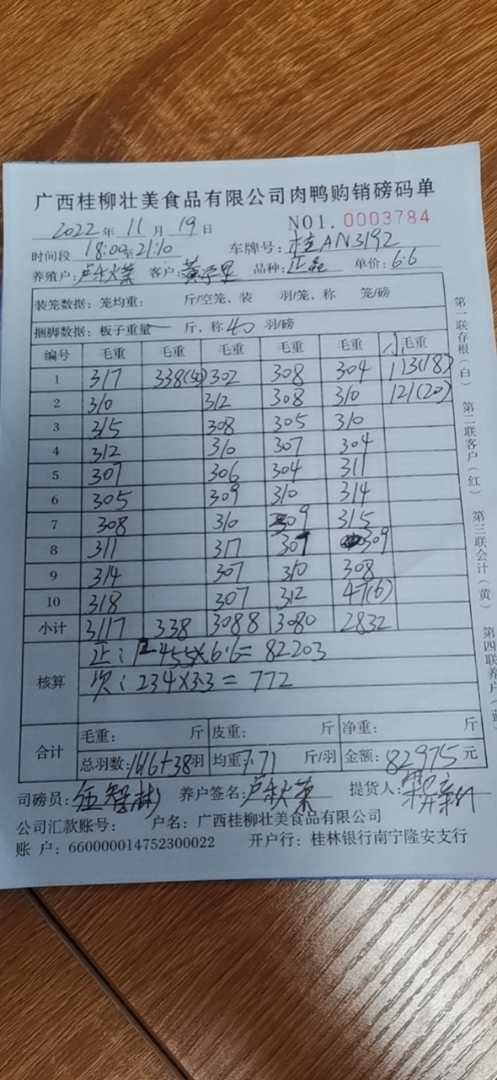 广西桂柳壮美食品有限公司肉鸭购销磅码单
2022年 11月 19日 NO1.0003784
时间段 18:00至21:10 车牌号：桂AN3192
养殖户： 客户： 品种：正品 单价：6.6
装笼数据：笼均重： 斤/空笼、装 羽/笼、称 笼/磅
捆脚数据：板子重量 — 斤、称 40 羽/磅
编号 毛重 毛重 毛重 毛重 毛重 毛重
1 317 338 302 308 304 113(18)
2 310 312 308 310 121(20)
3 315 308 305 310
4 312 310 307 304
5 307 306 304 311
6 305 309 310 314
7 308 310 309 315
8 311 317 307 309
9 314 307 310 308
10 318 307 312 47(6)
小计 3117 338 3088 3080 2832
核算 正：12455×6.6=82203
次：234×3.3=772
合计 毛重： 斤 皮重： 斤 净重： 斤
总羽数： 羽 均重7.71 斤/羽 金额：82975元
司磅员： 养户签名： 提货人：
公司汇款账号： 户名：广西桂柳壮美食品有限公司
账 户：660000014752300022 开户行：桂林银行南宁隆安支行
第一联存根(白) 第二联客户(红) 第三联会计(黄) 第四联养户